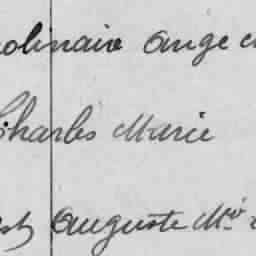 olinaire Ange
Charles Marie
Auguste Mie